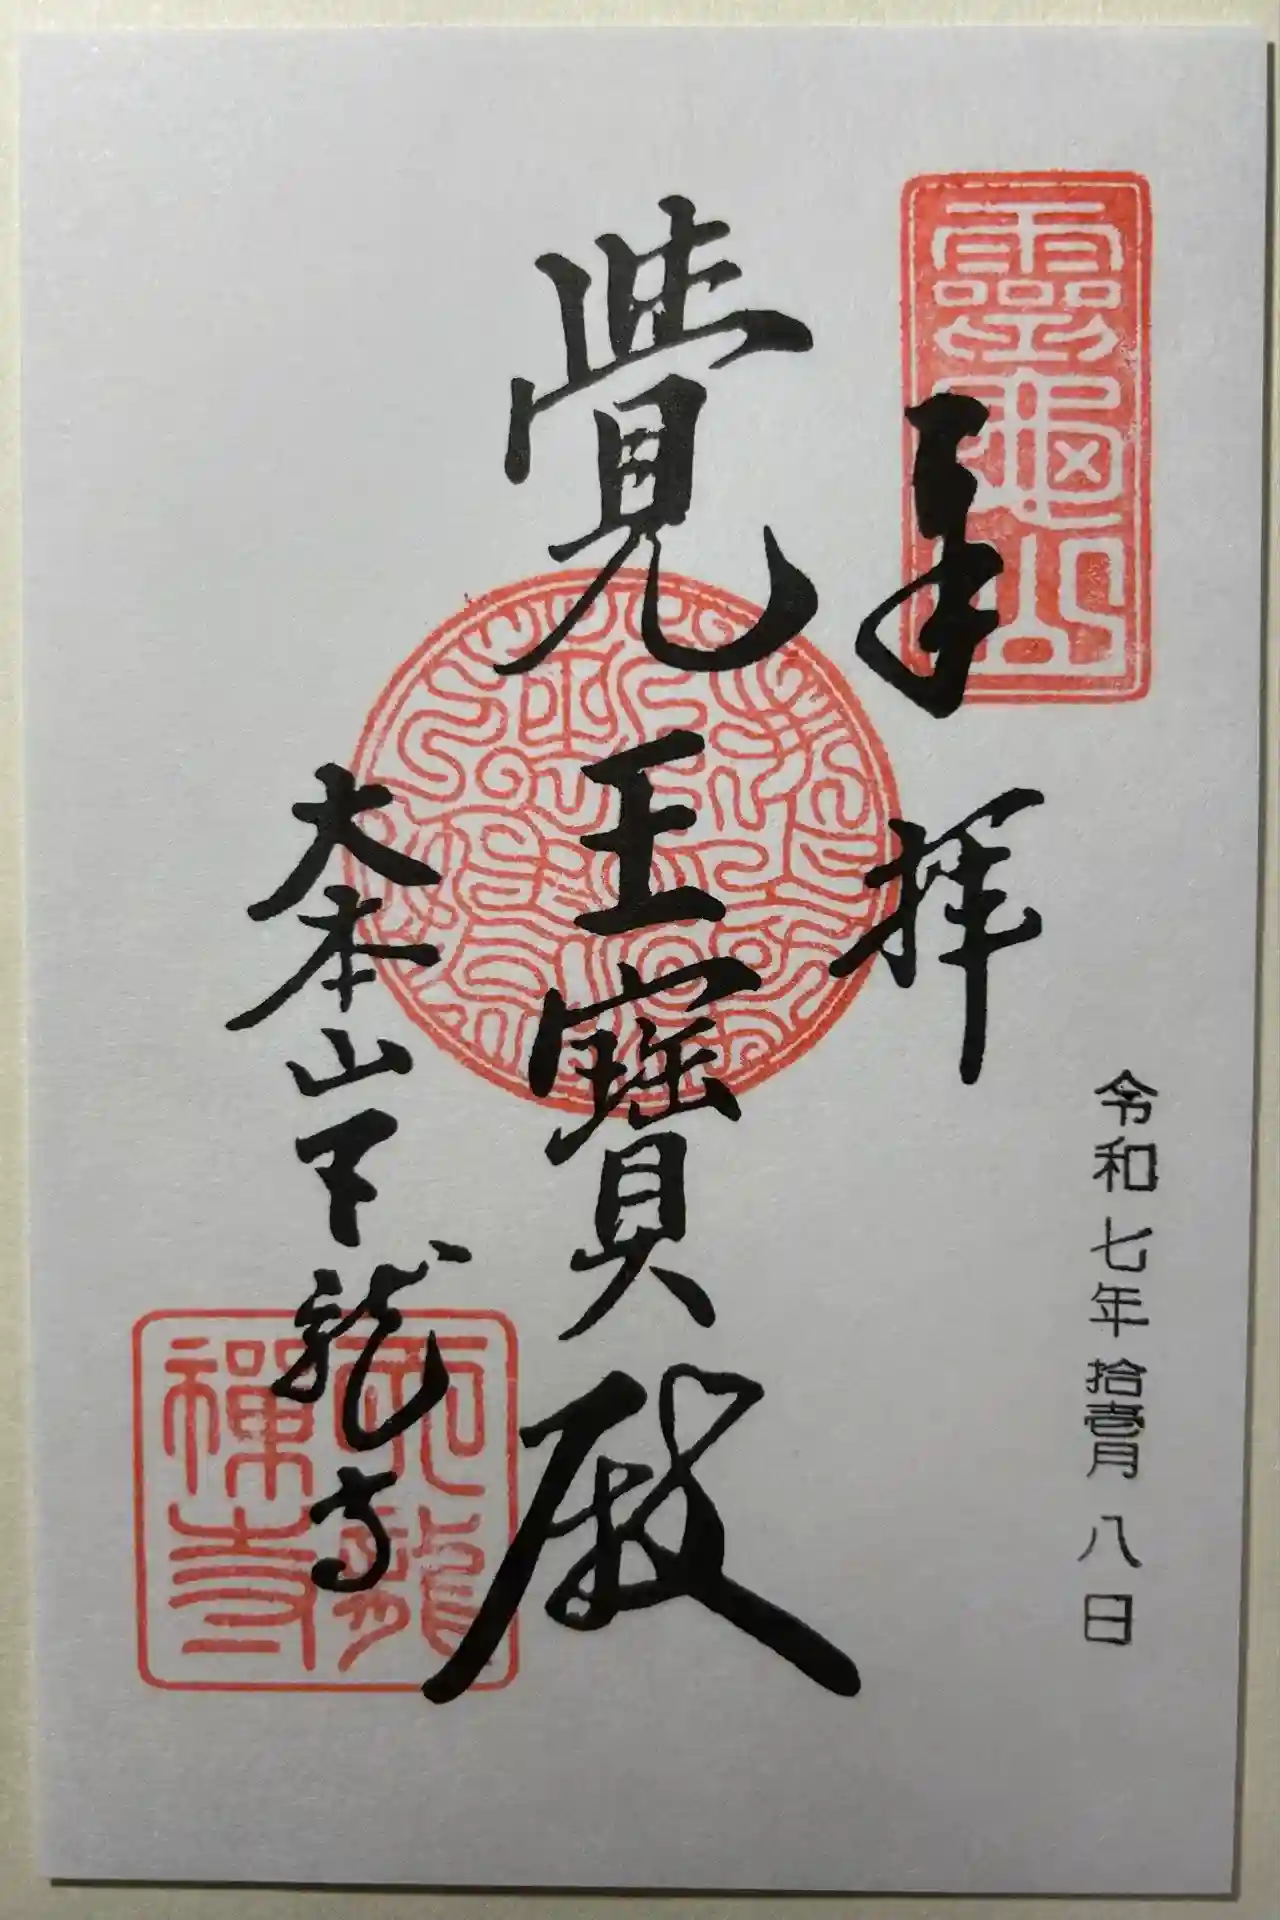 靈龜山
奉拝
令和七年拾壹月八日
覺王寶殿
大本山天龍寺
天龍
禅寺